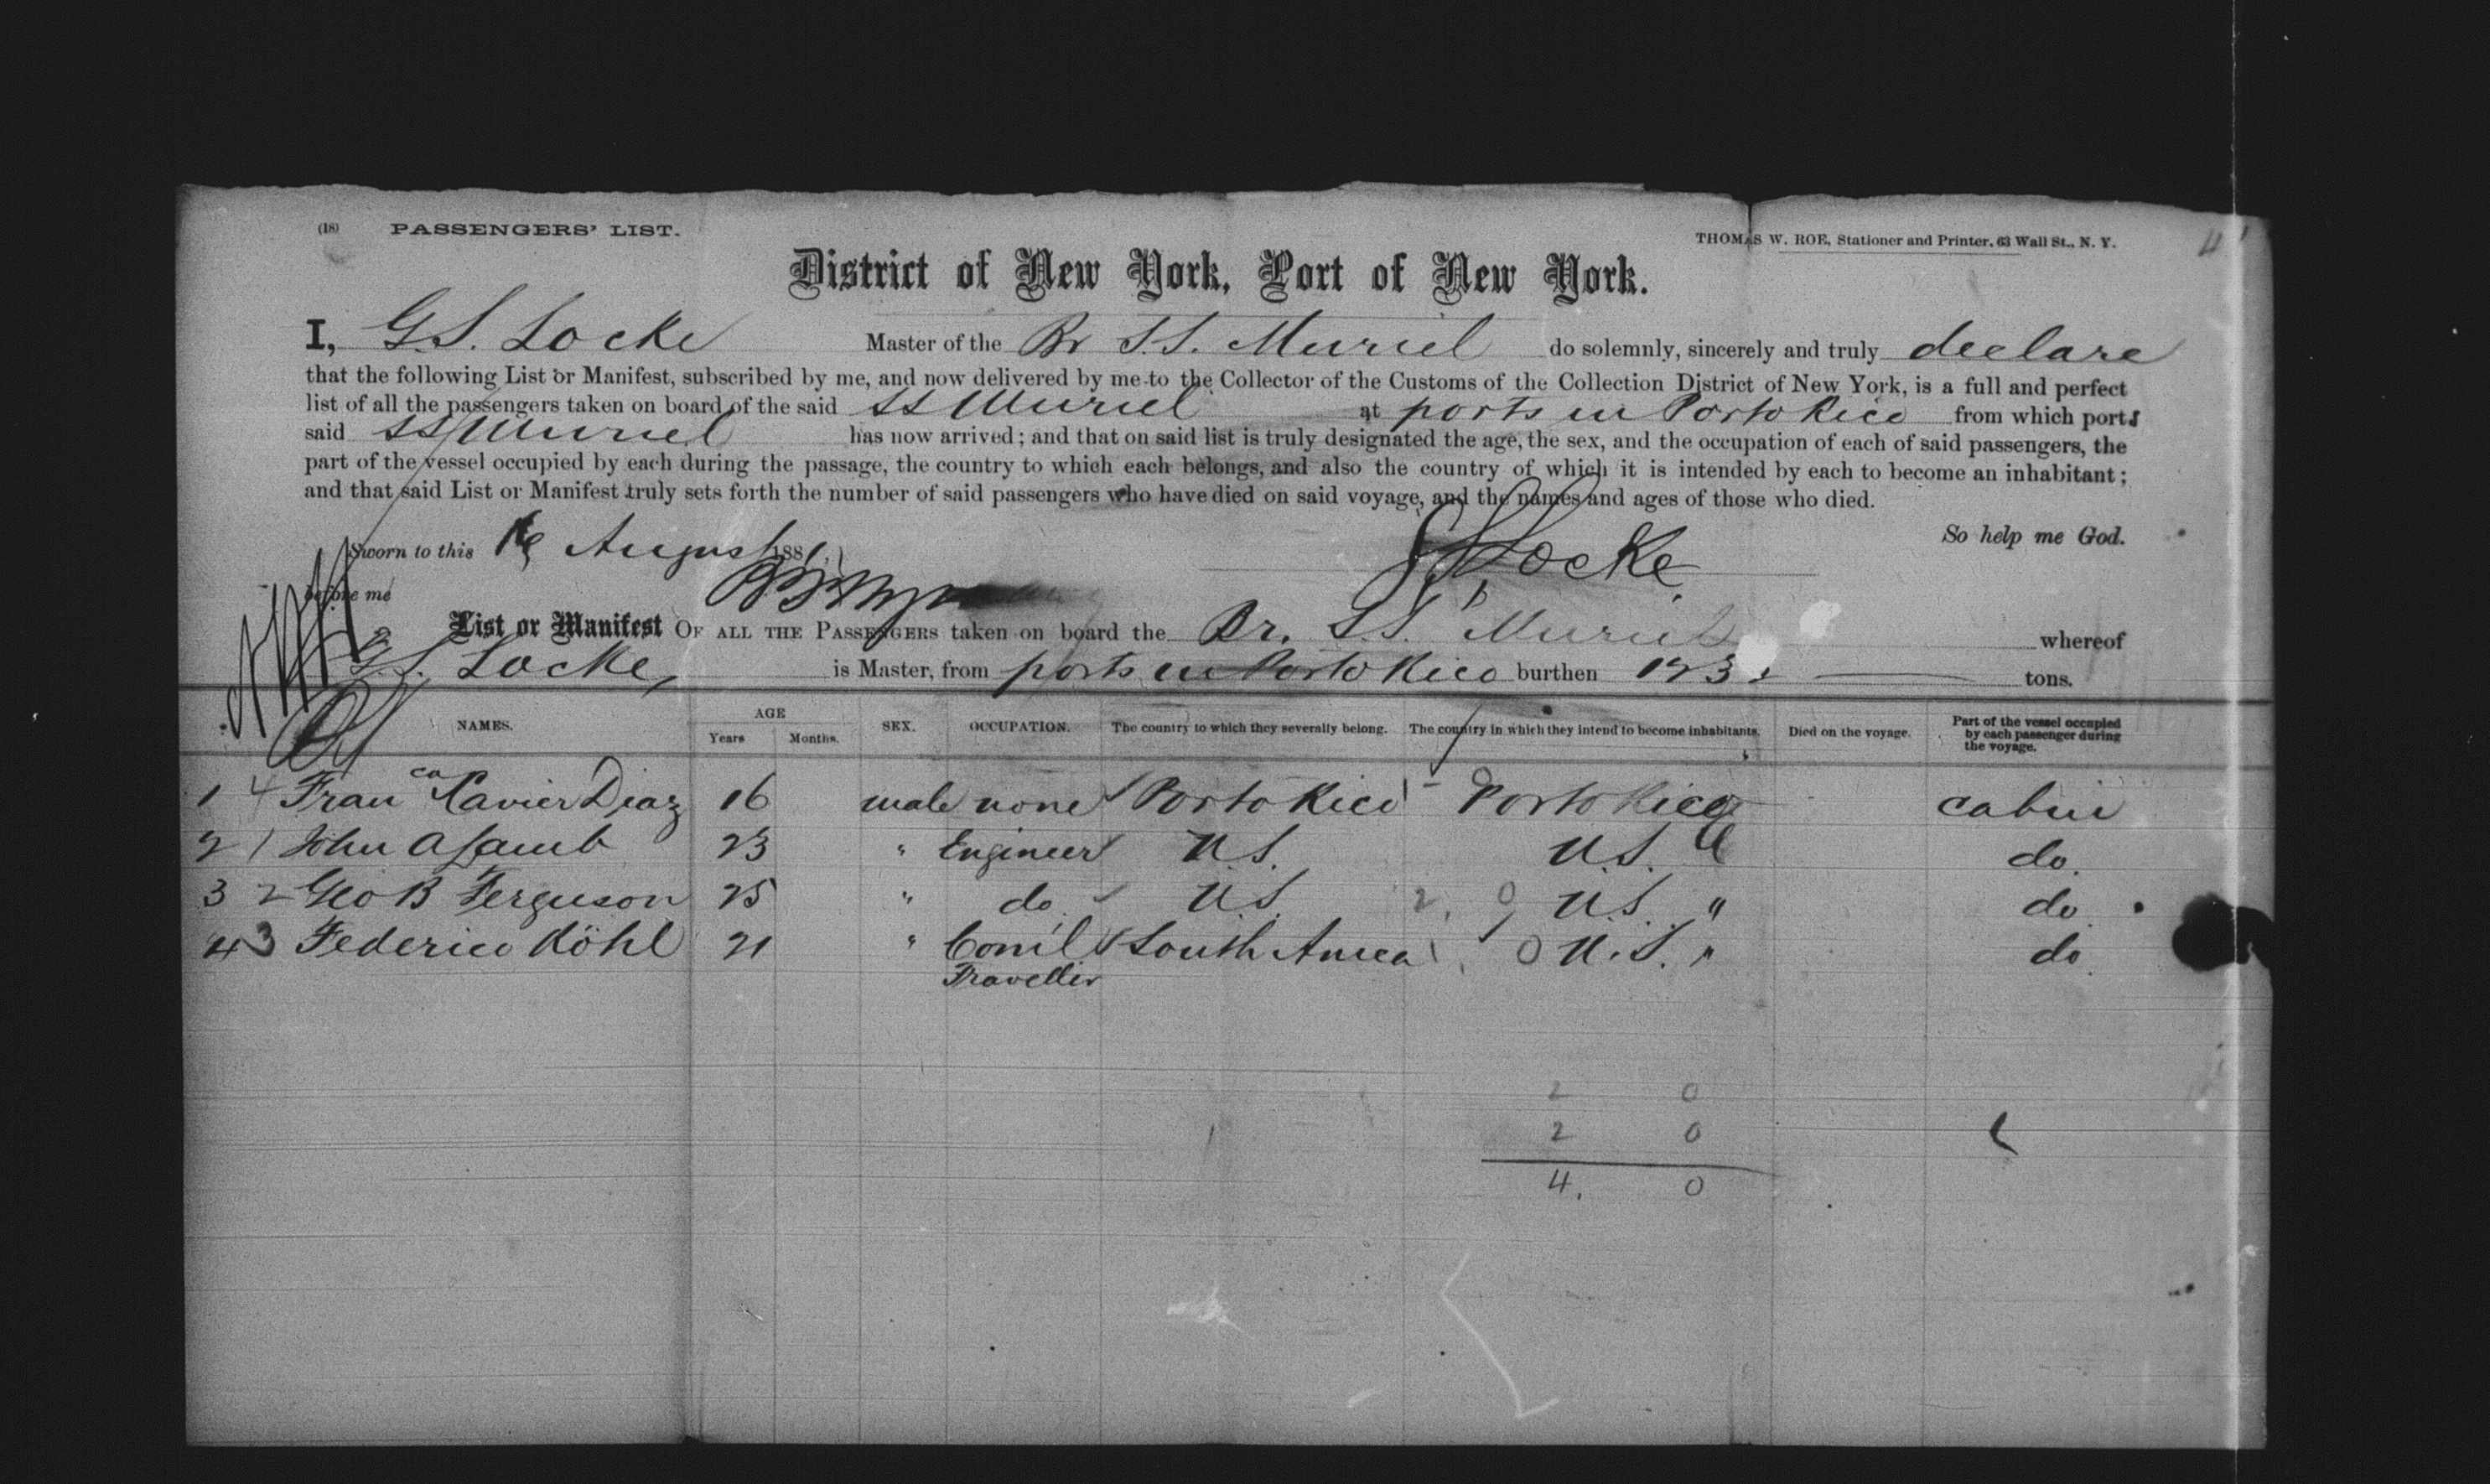 (18) PASSENGERS' LIST.
THOMAS W. ROE, Stationer and Printer, 63 Wall St., N. Y.
District of New York, Port of New York.
I, G. S. Locke Master of the Br S. S. Muriel do solemnly, sincerely and truly declare
that the following List or Manifest, subscribed by me, and now delivered by me to the Collector of the Customs of the Collection District of New York, is a full and perfect
list of all the passengers taken on board of the said SS Muriel at ports in Porto Rico from which ports
said SS Muriel has now arrived; and that on said list is truly designated the age, the sex, and the occupation of each of said passengers, the
part of the vessel occupied by each during the passage, the country to which each belongs, and also the country of which it is intended by each to become an inhabitant;
and that said List or Manifest truly sets forth the number of said passengers who have died on said voyage, and the names and ages of those who died.
So help me God.
Sworn to this August 188
G S Locke
before me
List or Manifest OF ALL THE PASSENGERS taken on board the Br. S. S. Muriel whereof
G. S. Locke, is Master, from ports in Porto Rico burthen tons.
NAMES. AGE Years Months. SEX. OCCUPATION. The country to which they severally belong. The country in which they intend to become inhabitants. Died on the voyage. Part of the vessel occupied by each passenger during the voyage.
1 4 Franca Xavier Diaz 16 male none Porto Rico Porto Rico cabin
2 1 John A Lamb 23 " Engineer U.S. U.S. do.
3 2 Geo B Ferguson 25 " do U.S. 2, 0 U.S. " do
4 3 Federico Köhl 21 " Coml South Amea 0 U.S. " do
Traveller
2 0
2 0
4. 0